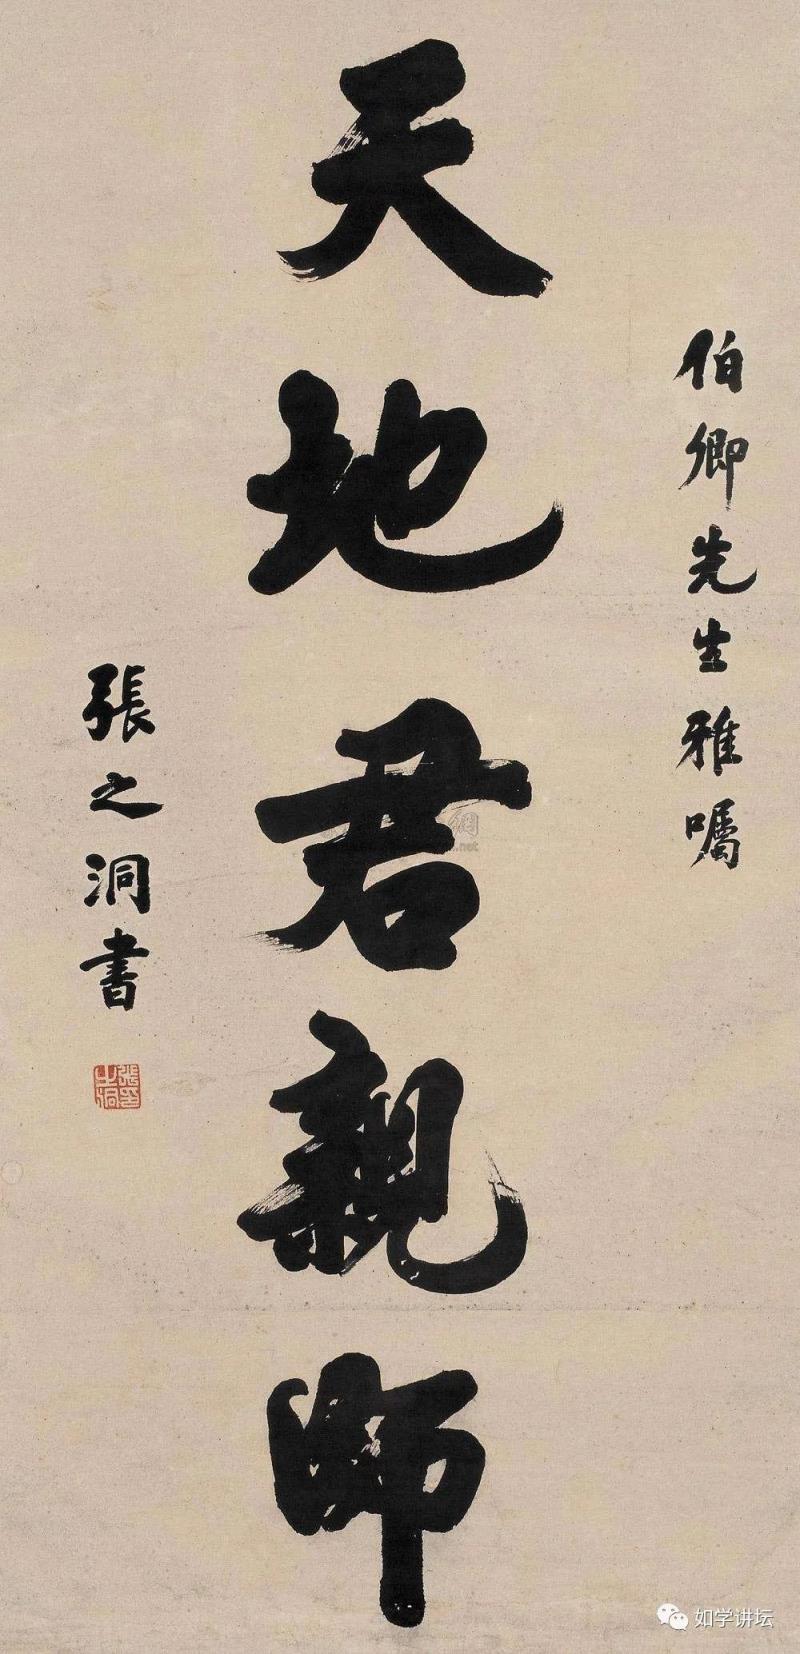 伯卿先生雅囑
天地君親師
張之洞書
張之洞印
如学讲坛